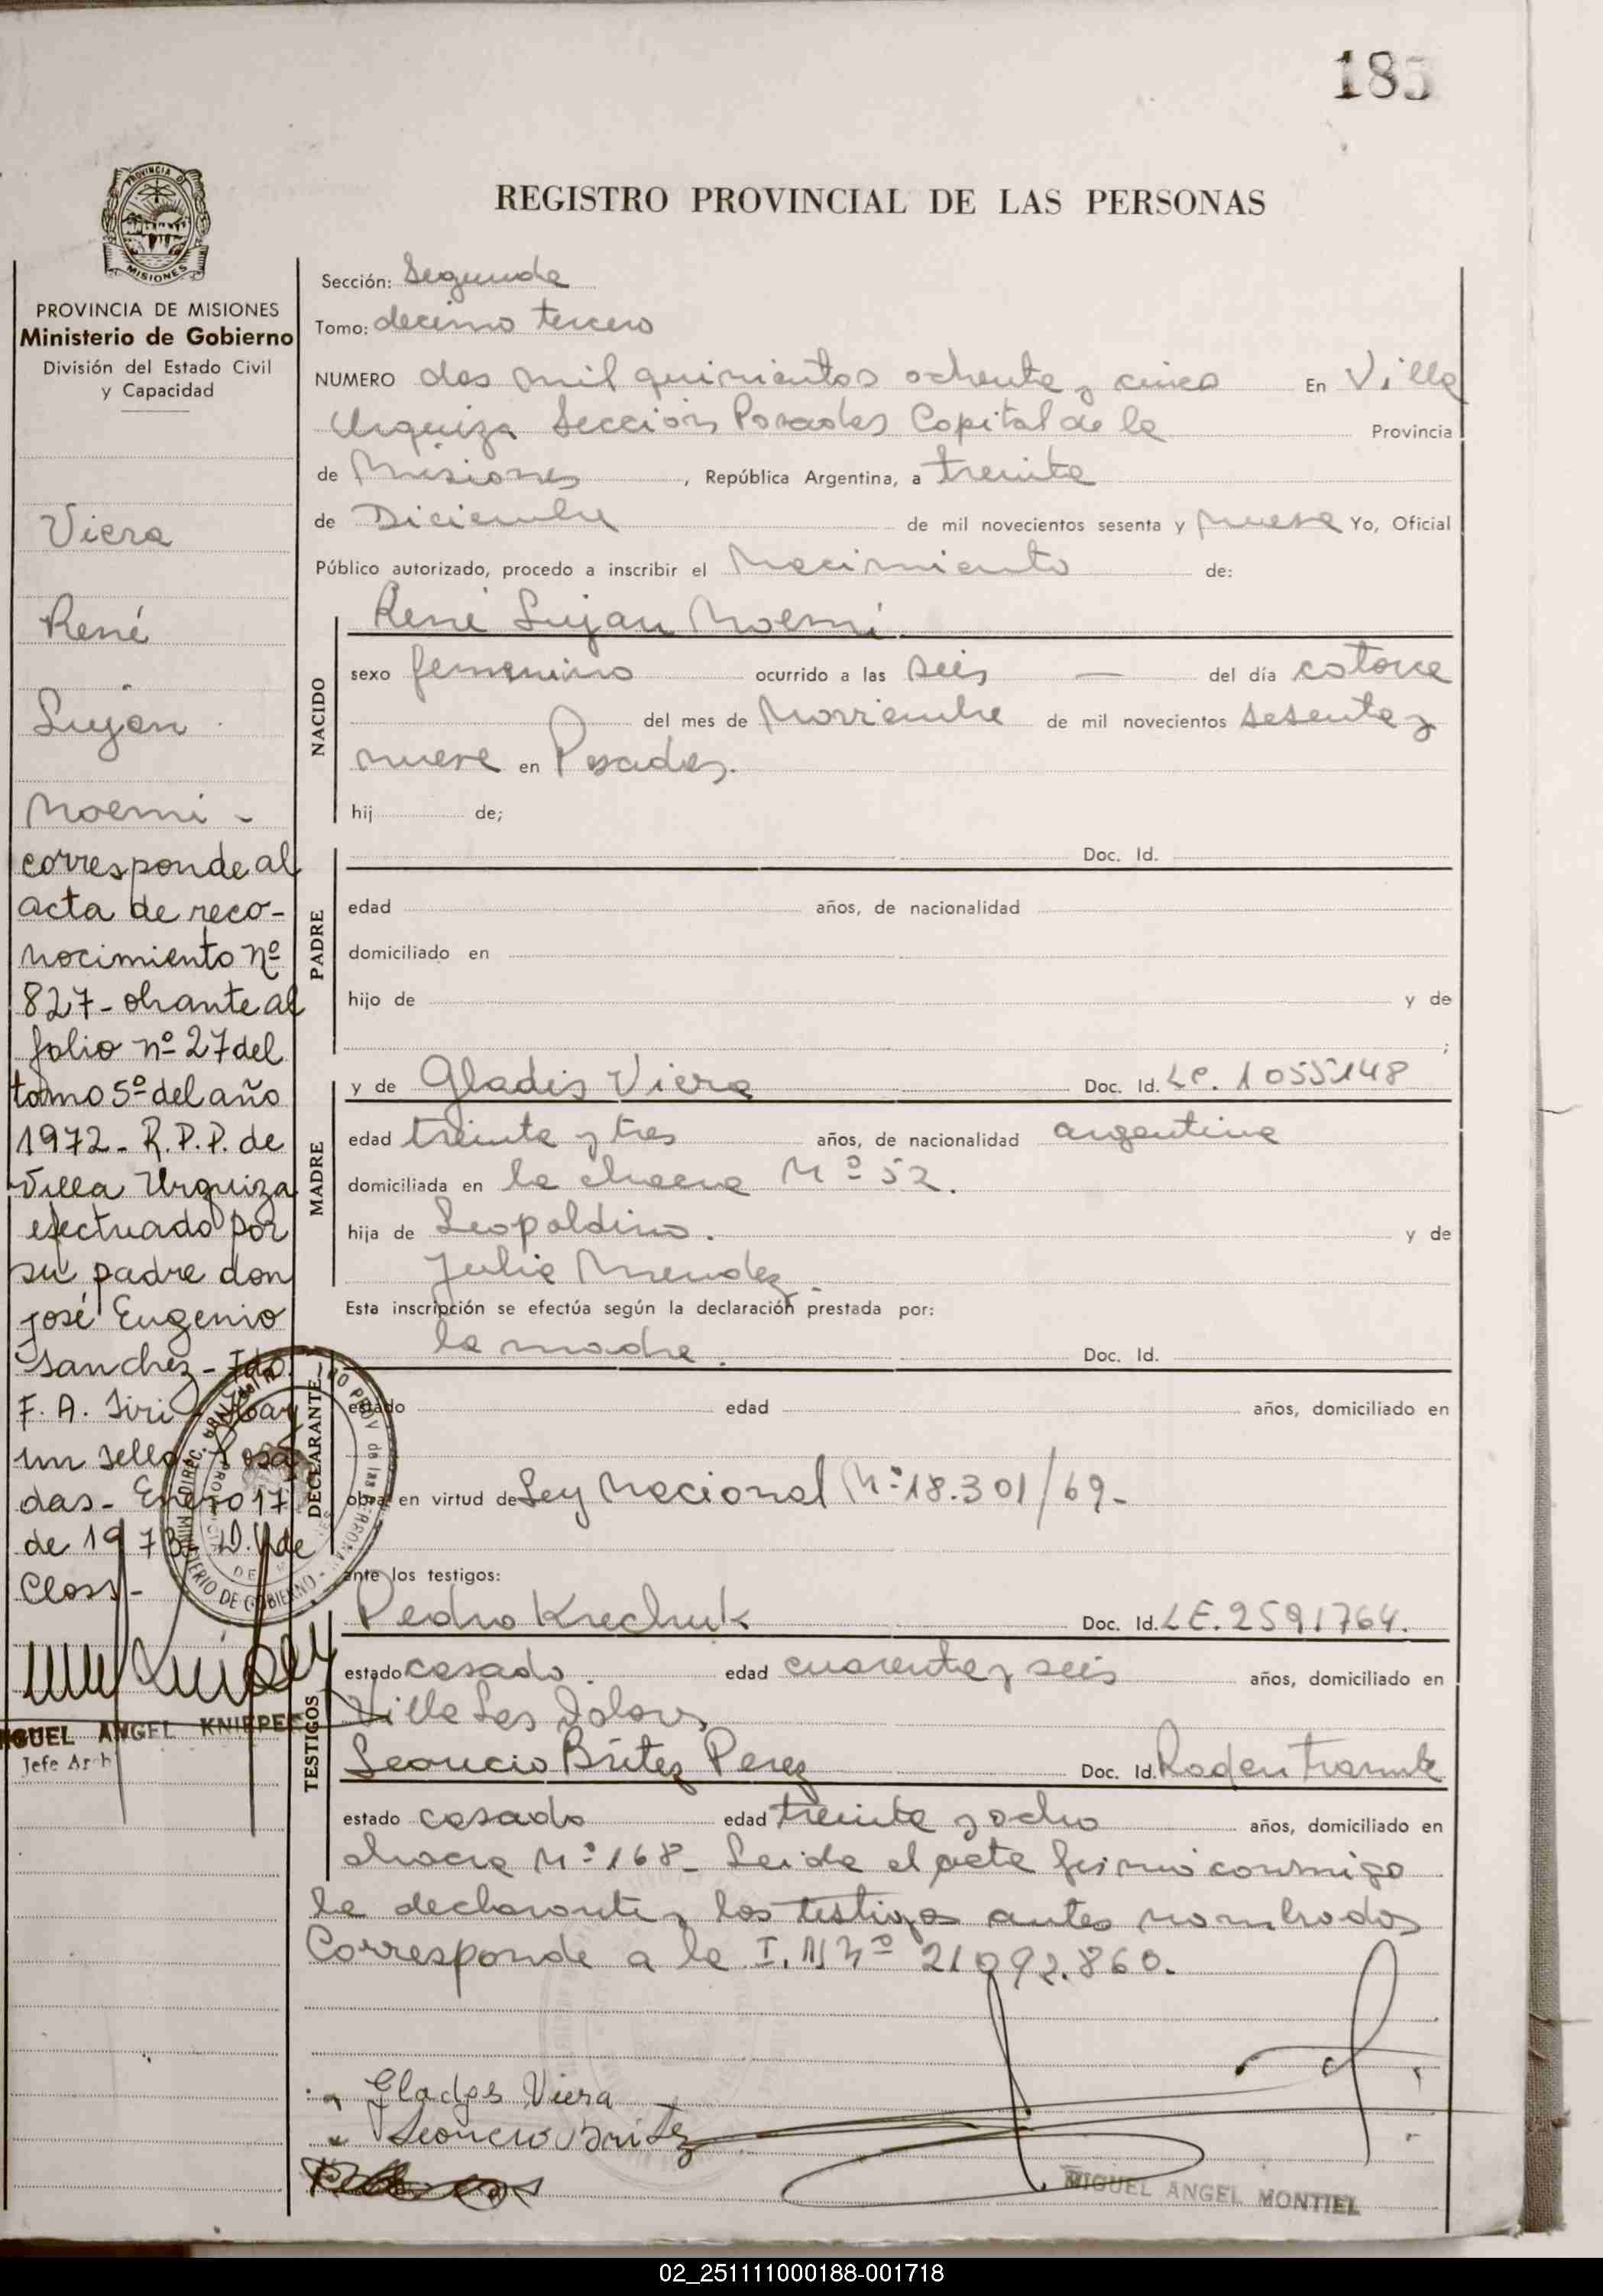 185
PROVINCIA DE
MISIONES
PROVINCIA DE MISIONES
Ministerio de Gobierno
División del Estado Civil
y Capacidad
Viera
René
Luján
Noemi -
corresponde al
acta de reco-
nocimiento nº
827 - obrante al
folio nº 27 del
tomo 5º del año
1972 - R.P.P. de
Villa Urquiza
efectuado por
su padre don
José Eugenio
Sanchez - Fdo.
F. A. Siri - Hay
un sello - Posa
das - Enero 17
de 1973 -
Closs -
MIGUEL ANGEL
Jefe Arch
REGISTRO PROVINCIAL DE LAS PERSONAS
Sección: Segunda
Tomo: decimo tercero
NUMERO dos mil quinientos ochenta y cinco En Villa
Urquiza Sección Posadas Capital de la Provincia
de Misiones , República Argentina, a treinta
de Diciembre de mil novecientos sesenta y nueve Yo, Oficial
Público autorizado, procedo a inscribir el Nacimiento de:
NACIDO
René Lujan Noemí
sexo femenino ocurrido a las seis — del día catorce
del mes de Noviembre de mil novecientos sesenta y
nueve en Posadas.
hij de;
PADRE
Doc. Id.
edad años, de nacionalidad
domiciliado en
hijo de y de
;
MADRE
y de Gladis Viera Doc. Id. LC. 1055148
edad treinta y tres años, de nacionalidad argentina
domiciliada en la chacra Nº 52.
hija de Leopoldino. y de
Julia Mendez.
Esta inscripción se efectúa según la declaración prestada por:
DECLARANTE
la madre. Doc. Id.
estado edad años, domiciliado en
obra en virtud de Ley Nacional Nº 18.301/69-
ante los testigos:
TESTIGOS
Pedro Krechuk Doc. Id. LE. 2591764.
estado casado edad cuarenta y seis años, domiciliado en
Villa Las Dolores
Leoncio Brítez Perez Doc. Id.
estado casado edad treinta y ocho años, domiciliado en
chacra Nº 168- Leida el acta firmó conmigo
la declarante y los testigos antes nombrados
Corresponde a la I. N Nº 21092.860.
Gladys Viera
Leoncio Britez
MIGUEL ANGEL MONTIEL
02_251111000188-001718